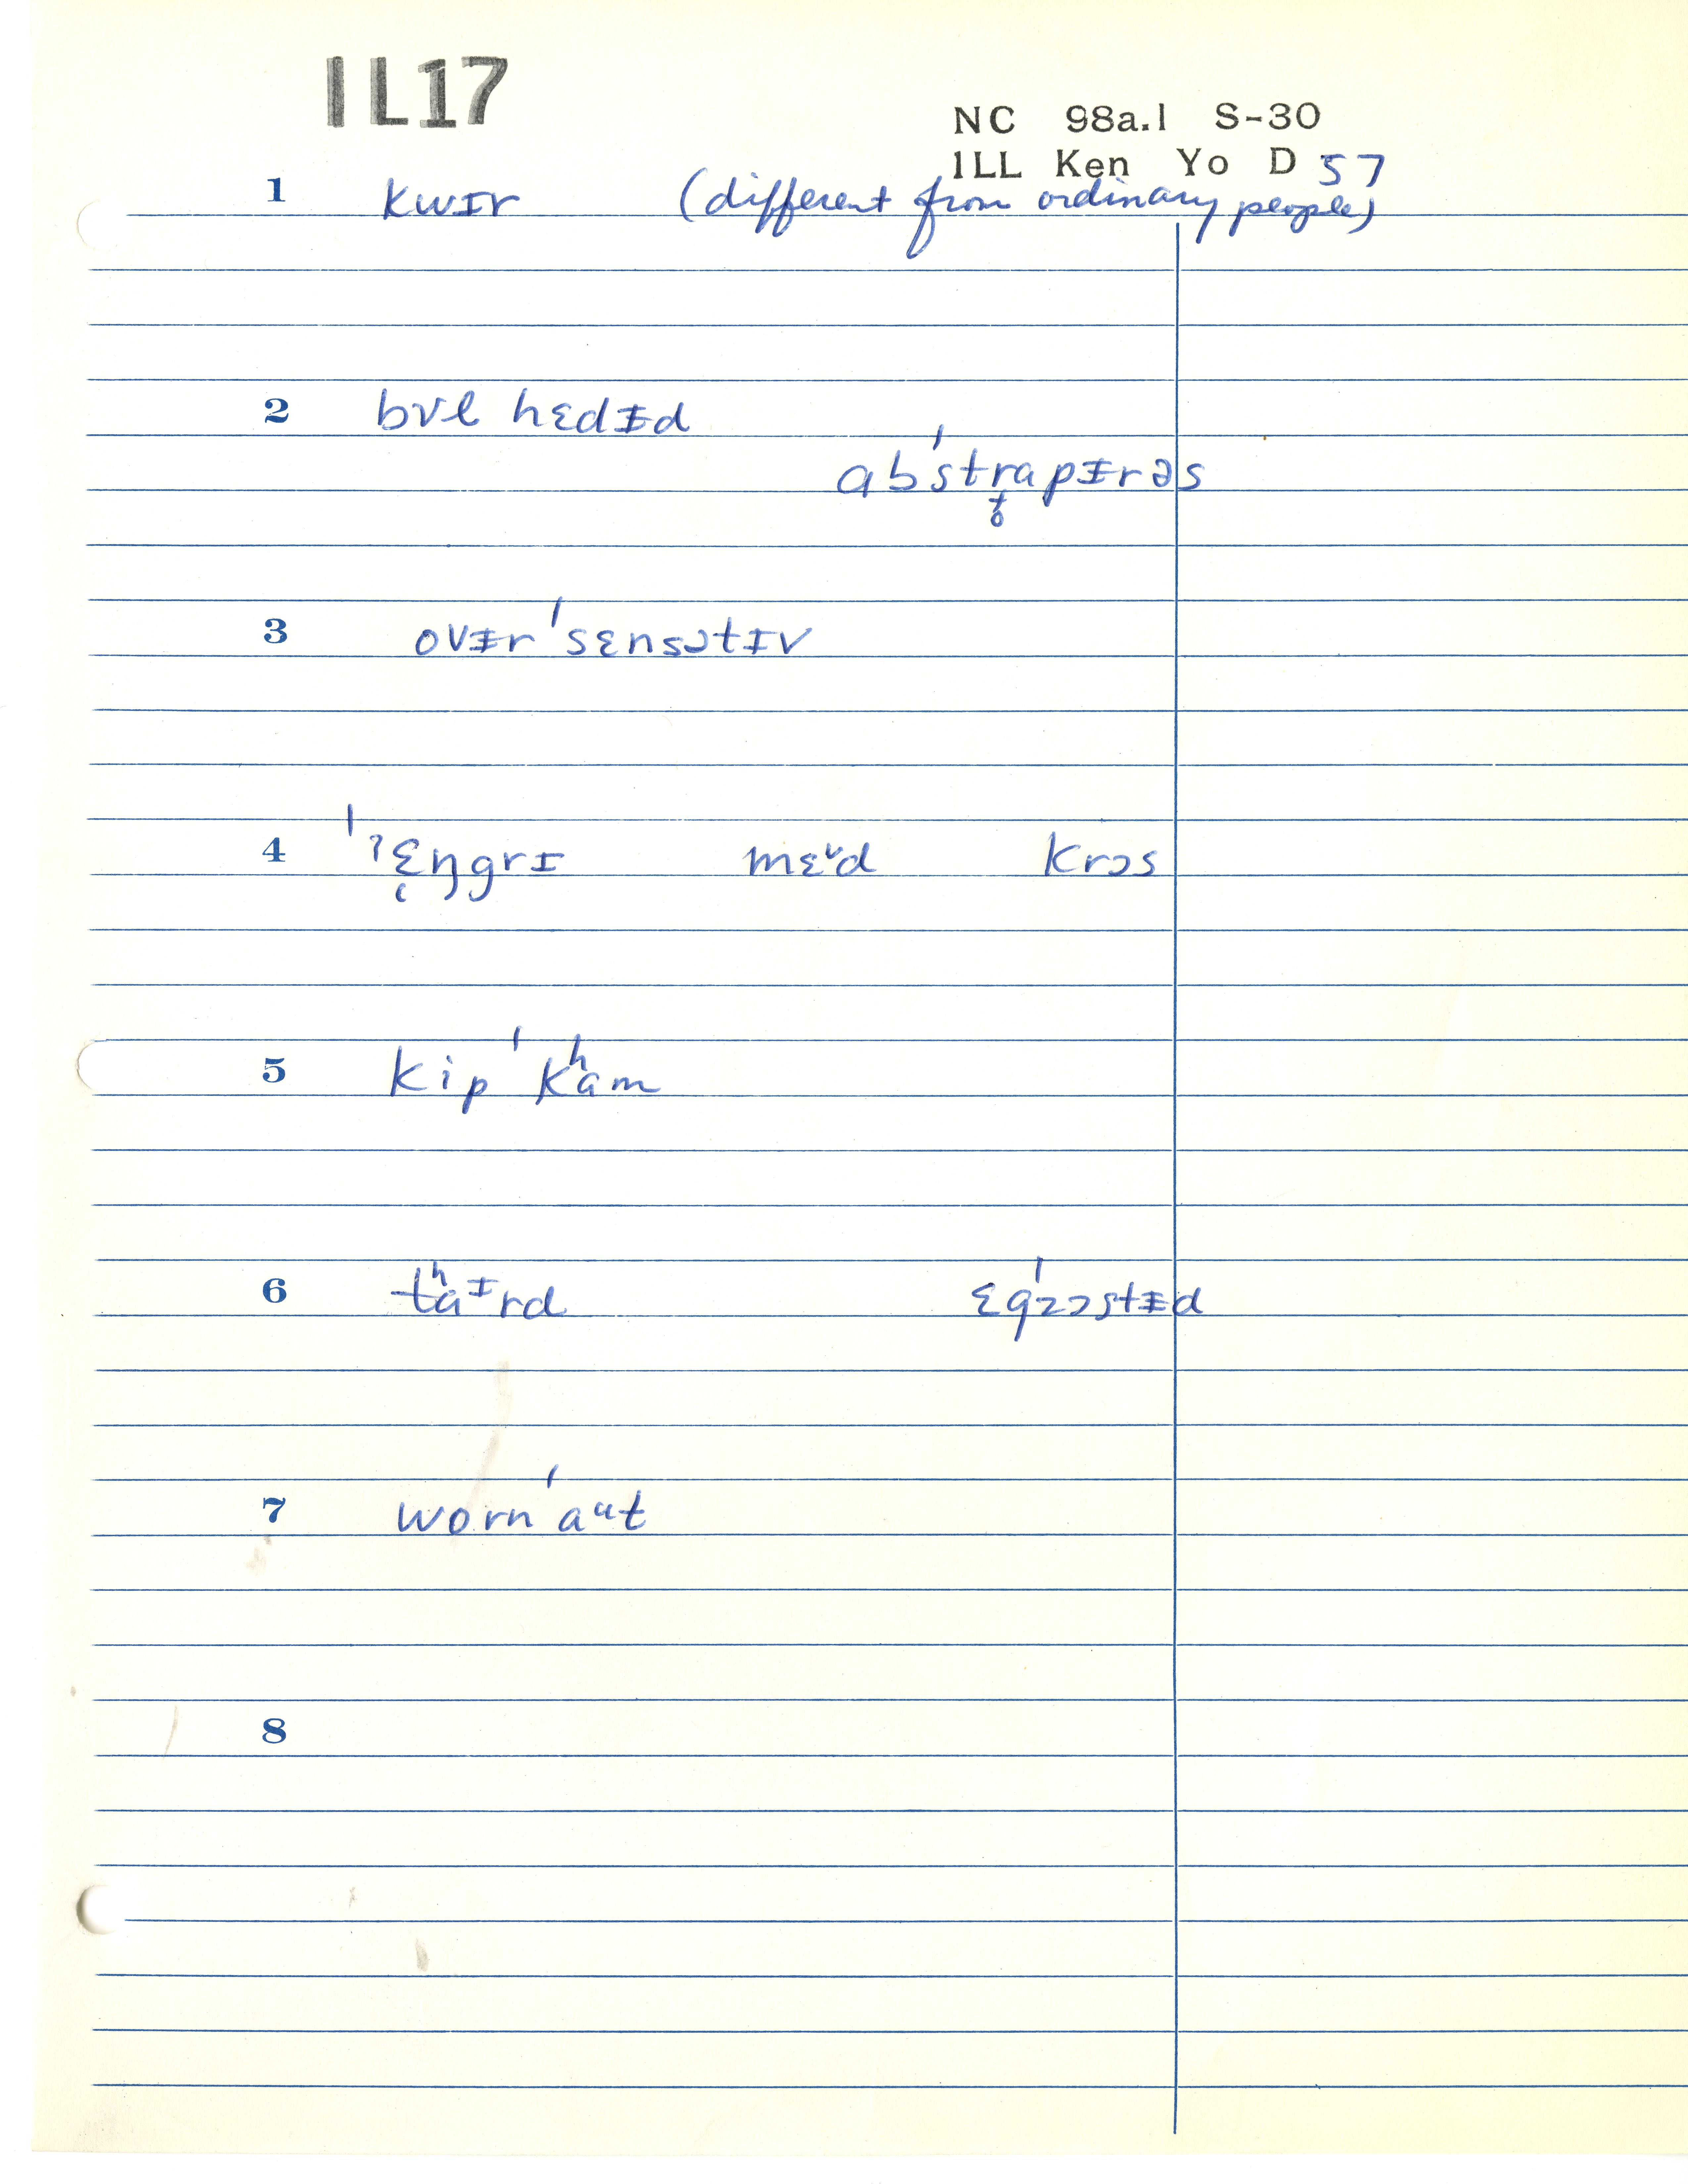 IL17
NC 98a.1 S-30
ILL Ken Yo D 57
1 kwɪr (different from ordinary people)
2 bʊl hɛdɨd
abˈstrapɨrəs
3 ovɨrˈsɛnsətɪv
4 ˈʔɛŋgrɪ mɛᵛd krɔs
5 kipˈkʰam
6 tʰaᶦrd ɛˈgzɔstɨd
7 wornˈaᵘt
8